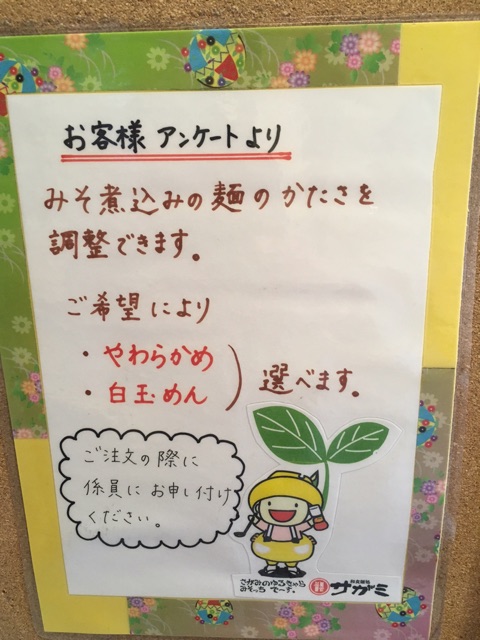 お客様 アンケートより
みそ煮込みの麺のかたさを
調整できます。
ご希望により
・やわらかめ
・白玉めん
選べます。
ご注文の際に
係員にお申し付け
ください。
さがみのゆるきゃら
みそっち でーす。
和食麺処
サガミ